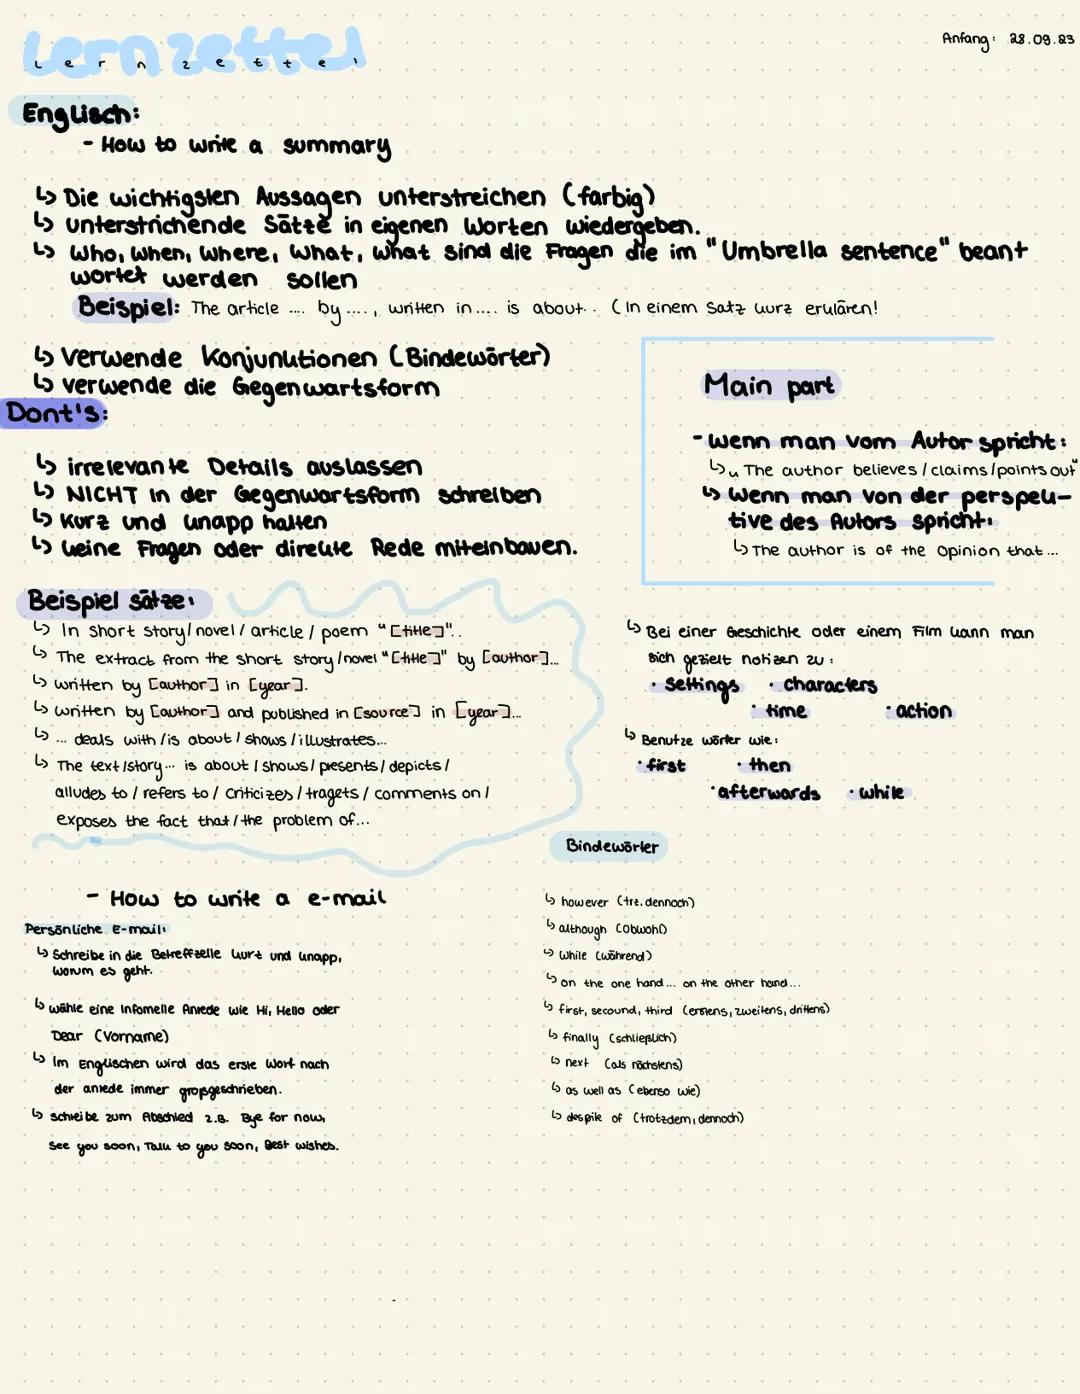 Lernzettel
Lernzettel
Anfang: 28.09.23
Englisch:
- How to write a summary
↳ Die wichtigsten Aussagen unterstreichen (farbig)
↳ unterstrichende Sätze in eigenen Worten wiedergeben.
↳ Who, When, Where, What, What sind die Fragen die im "Umbrella sentence" beant
wortet werden sollen
Beispiel: The article .... by ...., written in .... is about .. (In einem Satz kurz erklären!
↳ Verwende Konjunktionen (Bindewörter)
↳ verwende die Gegenwartsform
Dont's:
↳ irrelevante Details auslassen
↳ NICHT in der Gegenwartsform schreiben
↳ Kurz und knapp halten
↳ keine Fragen oder direkte Rede miteinbauen.
Main part
- Wenn man vom Autor spricht:
↳ „ The author believes / claims / points out"
↳ Wenn man von der perspek-
tive des Autors spricht:
↳ The author is of the opinion that ...
Beispiel sätze:
↳ In short story / novel / article / poem " [title]"..
↳ The extract from the short story / novel " [title]" by [author]...
↳ written by [author] in [year].
↳ written by [author] and published in [source] in [year]...
↳ ... deals with / is about / shows / illustrates...
↳ The text / story ... is about / shows / presents / depicts /
alludes to / refers to / criticizes / tragets / comments on /
exposes the fact that / the problem of...
↳ Bei einer Geschichte oder einem Film kann man
sich gezielt notizen zu:
· settings · characters
· time · action
↳ Benutze wörter wie:
· first · then
· afterwards · while
Bindewörter
↳ however (trz. dennoch)
↳ although (obwohl)
↳ while (während)
↳ on the one hand ... on the other hand ...
↳ first, secound, third (erstens, zweitens, drittens)
↳ finally (schließlich)
↳ next (als nächstens)
↳ as well as (ebenso wie)
↳ despite of (trotzdem, dennoch)
- How to write a e-mail
Persönliche E-mail:
↳ Schreibe in die Betreffzelle kurz und knapp,
worum es geht.
↳ wähle eine Infomelle Anrede wie Hi, Hello oder
Dear (Vorname)
↳ Im Englischen wird das erste Wort nach
der anrede immer großgeschrieben.
↳ schreibe zum Abschied z.B. Bye for now,
See you soon, Talk to you soon, Best wishes.